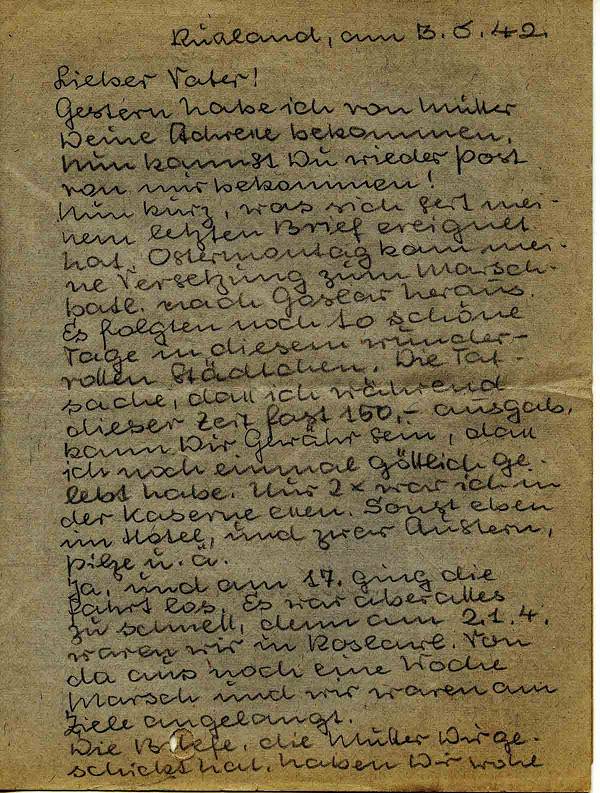 Rußland, am 13.5.42.
Lieber Vater!
Gestern habe ich von Mutter
Deine Adresse bekommen.
Nun kannst Du wieder Post
von mir bekommen!
Nun kurz, was sich seit mei-
nem letzten Brief ereignet
hat. Ostermontag kam mei-
ne Versetzung zum Marsch-
batl. nach Goslar heraus.
Es folgten noch 10 schöne
Tage in diesem wunder-
vollen Städtchen. Die Tat-
sache, daß ich während
dieser Zeit fast 150,- ausgab,
kann Dir Gewähr sein, daß
ich noch einmal göttlich ge-
lebt habe. Nur 2x war ich in
der Kaserne essen. Sonst eben
im Hotel, und zwar Austern,
Pilze u. ä.
Ja, und am 17. ging die
Fahrt los. Es war aber alles
zu schnell, denn am 21.4.
waren wir in Roslawl. Von
da aus noch eine Woche
Marsch und wir waren am
Ziele angelangt.
Die Briefe, die Mutter Dir ge-
schickt hat, haben Dir wohl